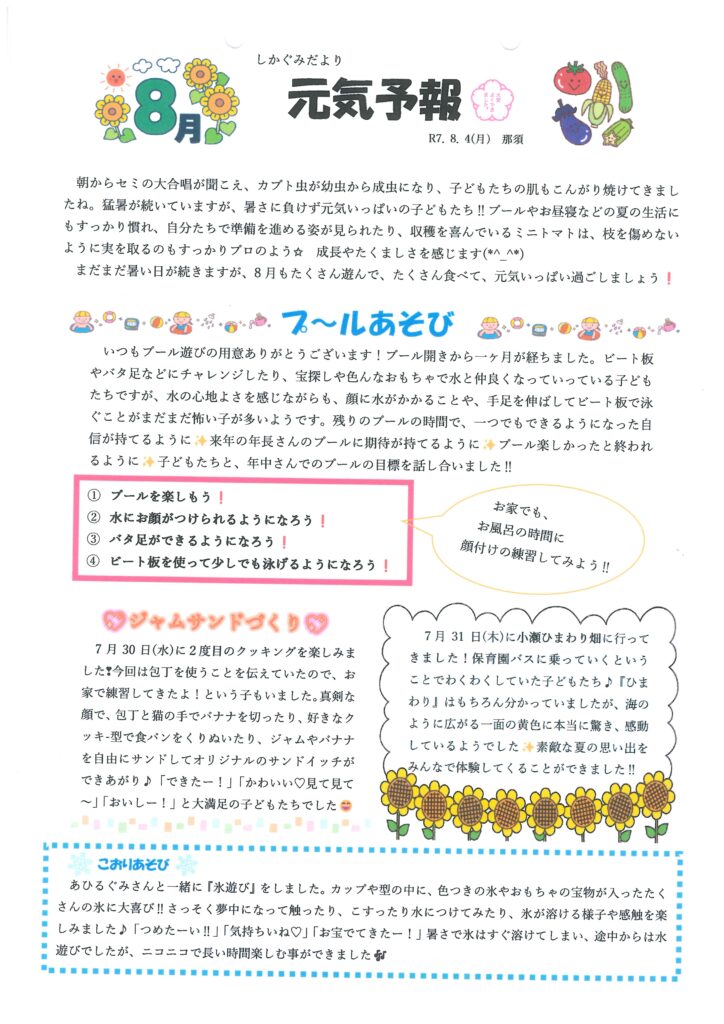 しかぐみだより
8月
元気予報
R7. 8. 4(月)　那須
朝からセミの大合唱が聞こえ、カブト虫が幼虫から成虫になり、子どもたちの肌もこんがり焼けてきまし
たね。猛暑が続いていますが、暑さに負けず元気いっぱいの子どもたち!!プールやお昼寝などの夏の生活に
もすっかり慣れ、自分たちで準備を進める姿が見られたり、収穫を喜んでいるミニトマトは、枝を傷めない
ように実を取るのもすっかりプロのよう☆　成長やたくましさを感じます(*^_^*)
まだまだ暑い日が続きますが、8月もたくさん遊んで、たくさん食べて、元気いっぱい過ごしましょう❗
プ～ルあそび
いつもプール遊びの用意ありがとうございます！プール開きから一ヶ月が経ちました。ビート板
やバタ足などにチャレンジしたり、宝探しや色んなおもちゃで水と仲良くなっていっている子ども
たちですが、水の心地よさを感じながらも、顔に水がかかることや、手足を伸ばしてビート板で泳
ぐことがまだまだ怖い子が多いようです。残りのプールの時間で、一つでもできるようになった自
信が持てるように✨来年の年長さんのプールに期待が持てるように✨プール楽しかったと終われ
るように✨子どもたちと、年中さんでのプールの目標を話し合いました!!
① プールを楽しもう❗
② 水にお顔がつけられるようになろう❗
③ バタ足ができるようになろう❗
④ ビート板を使って少しでも泳げるようになろう❗
お家でも、
お風呂の時間に
顔付けの練習してみよう!!
ジャムサンドづくり
7月30日(水)に2度目のクッキングを楽しみま
した❣今回は包丁を使うことを伝えていたので、お
家で練習してきたよ！という子もいました。真剣な
顔で、包丁と猫の手でバナナを切ったり、好きなク
ッキー型で食パンをくりぬいたり、ジャムやバナナ
を自由にサンドしてオリジナルのサンドイッチが
できあがり♪「できたー！」「かわいい♡見て見て
～」「おいしー！」と大満足の子どもたちでした😄
7月31日(木)に小瀬ひまわり畑に行って
きました！保育園バスに乗っていくという
ことでわくわくしていた子どもたち♪『ひま
わり』はもちろん分かっていましたが、海の
ように広がる一面の黄色に本当に驚き、感動
しているようでした✨素敵な夏の思い出を
みんなで体験してくることができました!!
こおりあそび
あひるぐみさんと一緒に『氷遊び』をしました。カップや型の中に、色つきの氷やおもちゃの宝物が入ったたく
さんの氷に大喜び!!さっそく夢中になって触ったり、こすったり水につけてみたり、氷が溶ける様子や感触を楽
しみました♪「つめたーい!!」「気持ちいね♡」「お宝でてきたー！」暑さで氷はすぐ溶けてしまい、途中からは水
遊びでしたが、ニコニコで長い時間楽しむ事ができました🎶